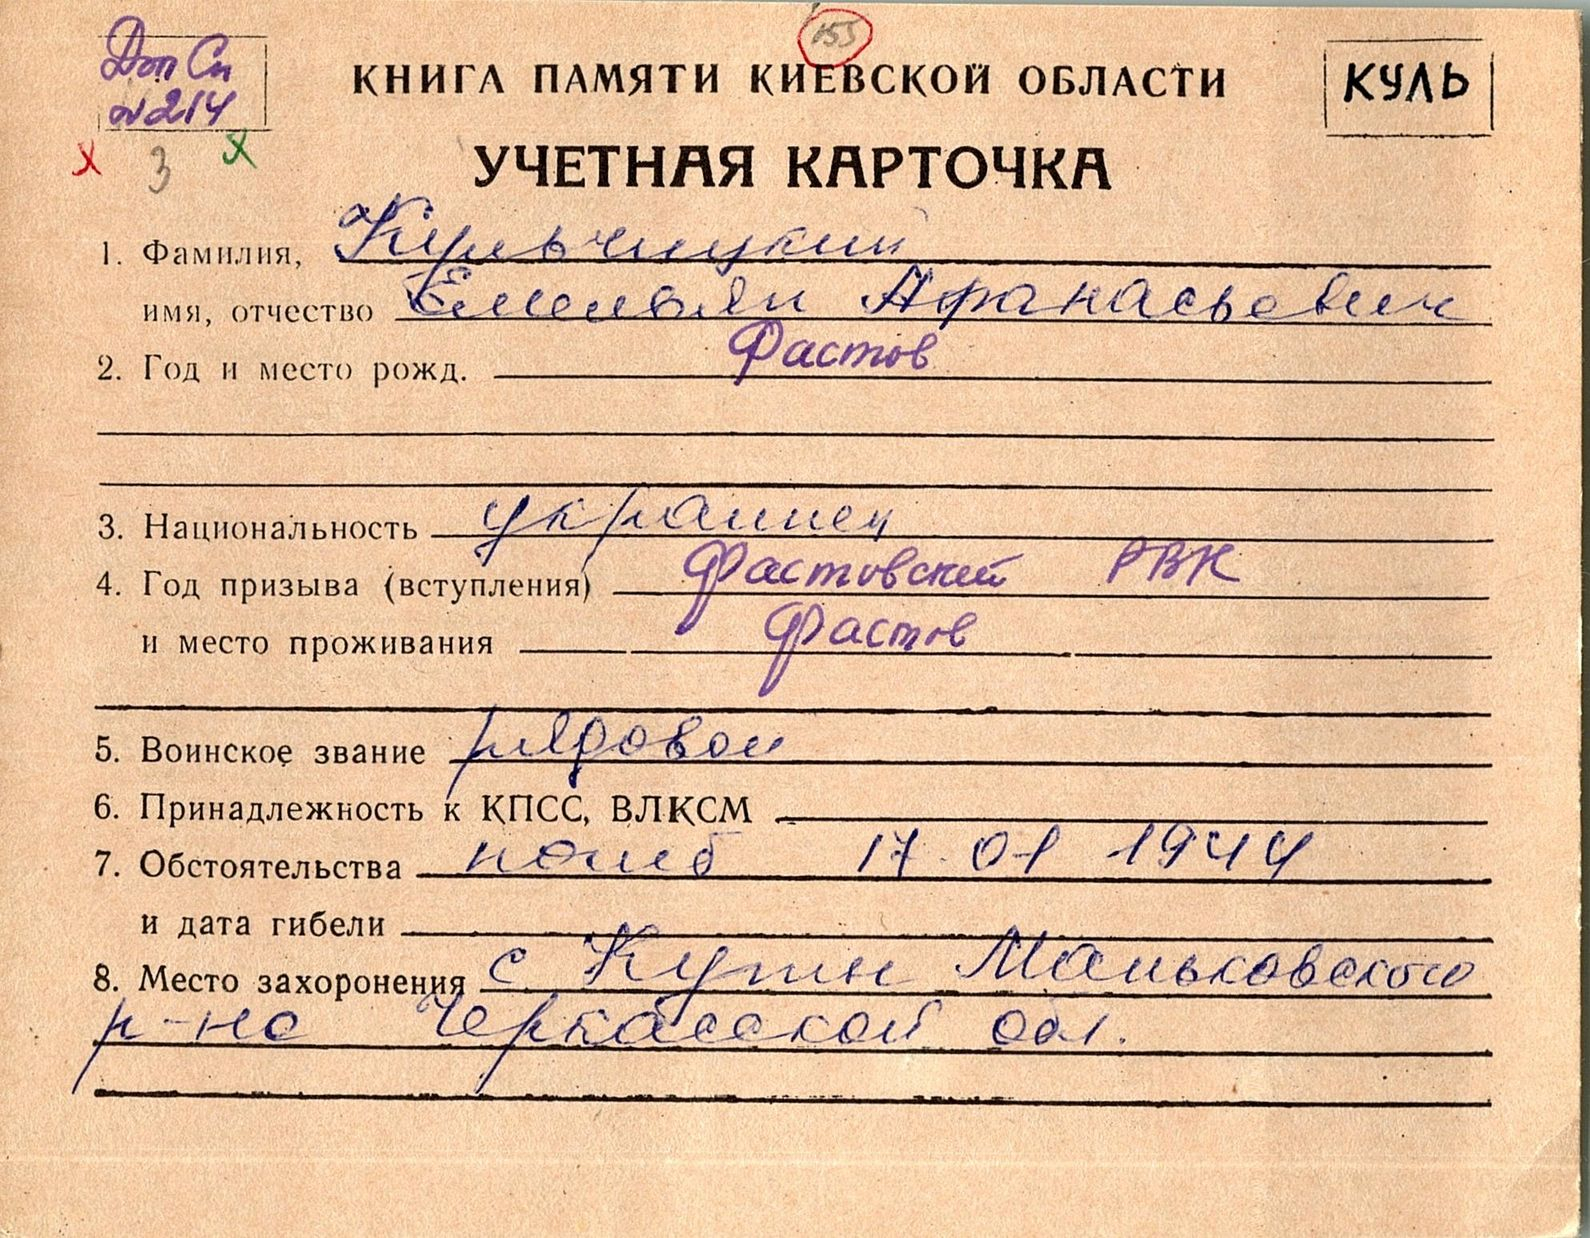 155
Доп Сп
N214
КНИГА ПАМЯТИ КИЕВСКОЙ ОБЛАСТИ
КУЛЬ
х 3 х
УЧЕТНАЯ КАРТОЧКА
1. Фамилия, Кульчицкий
имя, отчество Емельян Афанасьевич
2. Год и место рожд. Фастов
3. Национальность украинец
4. Год призыва (вступления) Фастовский РВК
и место проживания Фастов
5. Воинское звание рядовой
6. Принадлежность к КПСС, ВЛКСМ
7. Обстоятельства погиб 17.01 1944
и дата гибели
8. Место захоронения с Кути Маньковского
р-на Черкасской обл.